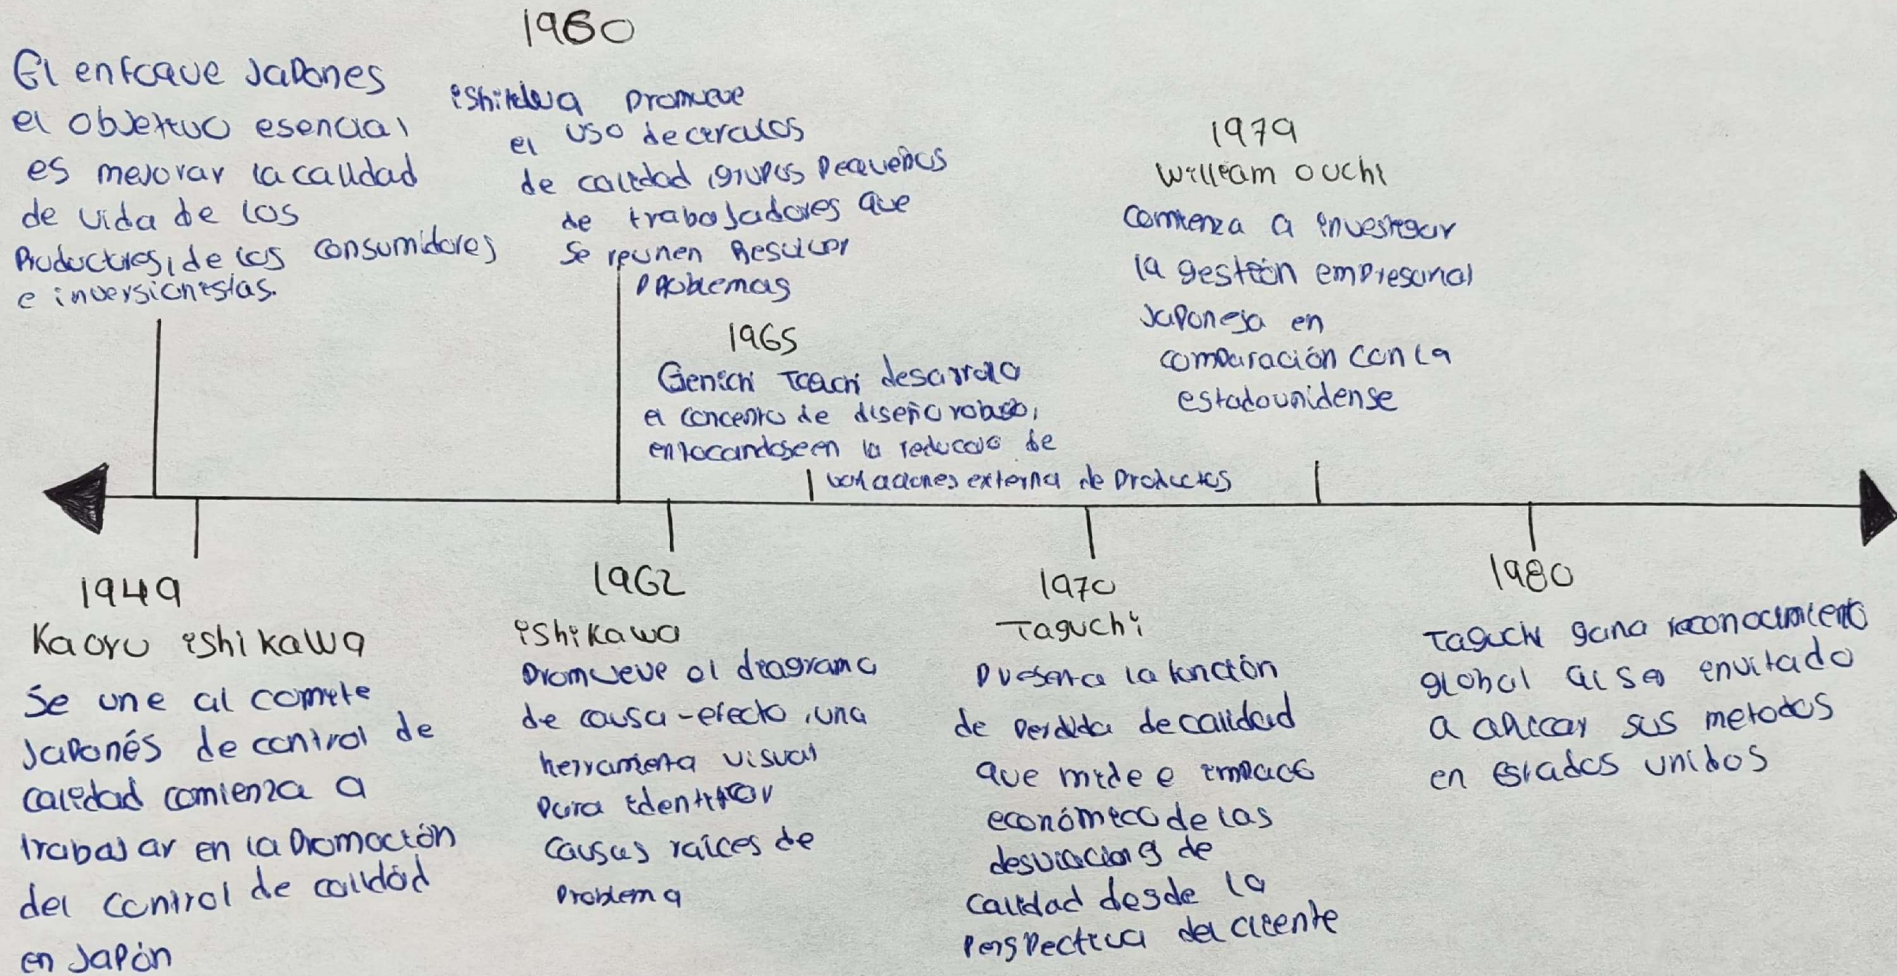 El enfoque Japones
el objetivo esencial
es mejorar la calidad
de vida de los
Productores, de los consumidores
e inversionistas.
1960
ishikawa promueve
el uso de circulos
de calidad, grupos Pequeños
de trabajadores que
se reunen Resolver
Problemas
1965
Genichi desarrolo
el concepto de diseño robusto,
enfocandose en la de
externa de Productos
1979
William ouchi
comienza a investigar
la gestión empresarial
Japonesa en
comparación con la
estadounidense
1949
Kaoru ishikawa
Se une al comite
Japonés de control de
calidad comienza a
trabajar en la Promoción
del control de calidad
en Japón
1962
ishikawa
Promueve el diagrama
de causa-efecto, una
herramienta visual
para
causas raíces de
Problema
1970
Taguchi
Presenta la función
de perdida de calidad
que mide e
económico de las
de
calidad desde la
perspectiva del cliente
1980
Taguchi gana reconocimiento
global al envitado
a aplicar sus metodos
en estados unidos